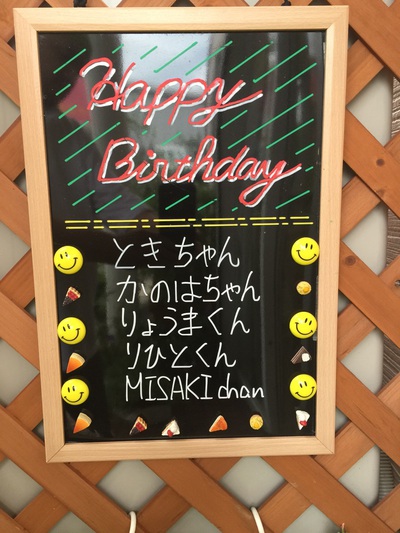 Happy
Birthday
ときちゃん
かのはちゃん
りょうまくん
りひとくん
MISAKI chan